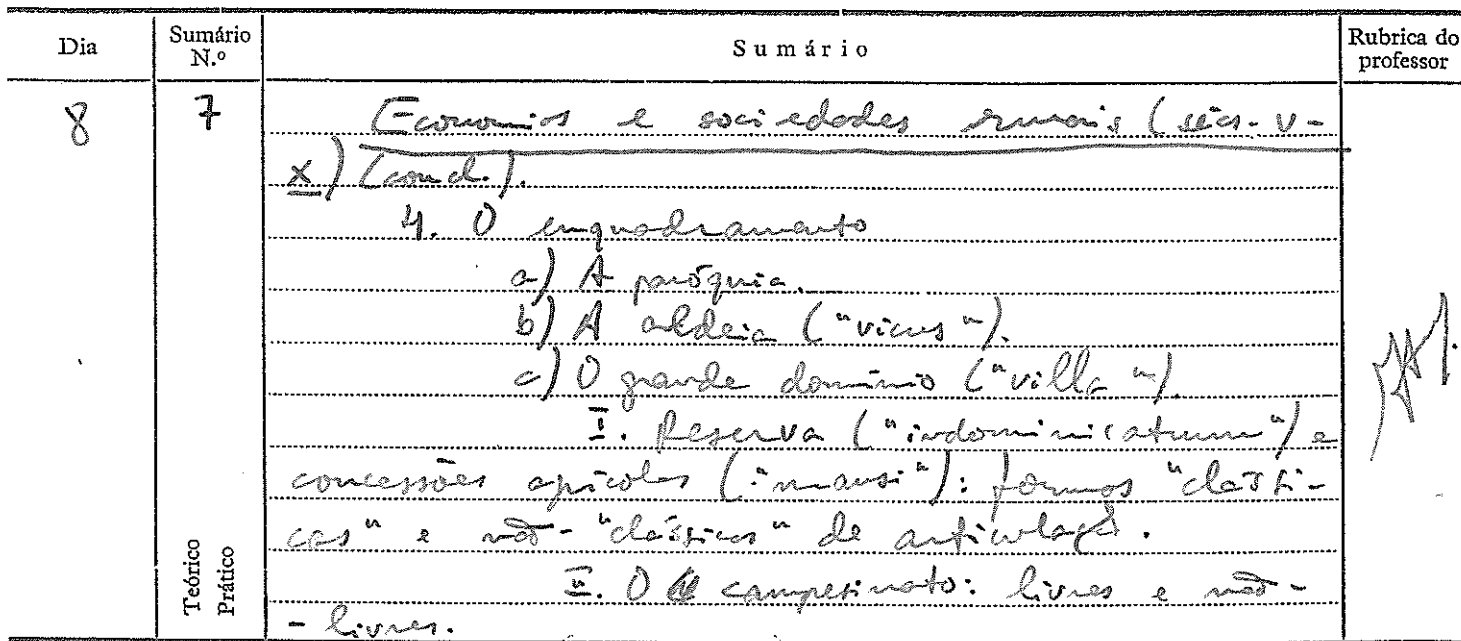 Dia
Sumário N.º
Sumário
Rubrica do professor
8
7
Economias e sociedades rurais (sécs. V-
X) (concl.).
4. O enquadramento
a) A paróquia.
b) A aldeia ("vicus").
c) O grande domínio ("villa")
I. Reserva ("indominicatum") e
concessões agrícolas ("mansi"): formas "clássi-
cas" e não-"clássicas" de articulação.
II. O campesinato: livres e não-
-livres.
Teórico
Prático